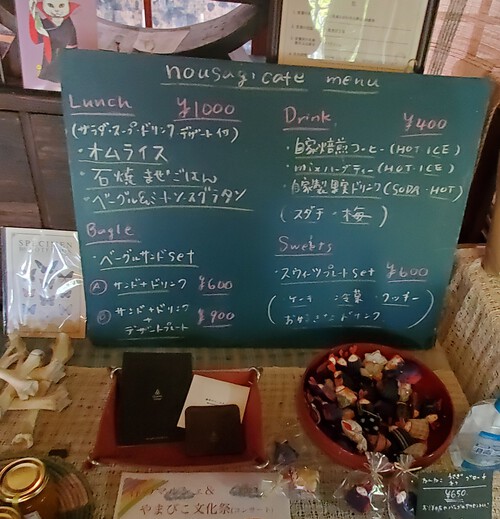 nousagi cafe menu
Lunch ¥1000
(サラダ・スープ・ドリンク デザート付)
・オムライス
・石焼まぜごはん
・ベーグル&ミートソースグラタン
Bagle
・ベーグルサンドset
Ⓐ サンド+ドリンク ¥600
Ⓑ サンド+ドリンク
+
デザートプレート ¥900
Drink ¥400
・自家焙煎コーヒー(HOT・ICE)
・mixハーブティー(HOT・ICE)
・自家製果実ドリンク(SODA・HOT)
(スダチ・梅)
Sweets
・スウィーツプレートset ¥600
(ケーキ 冷菓・クッキー
ドリンク)
SPECIMEN
やまびこ文化祭(コンサート)
¥650